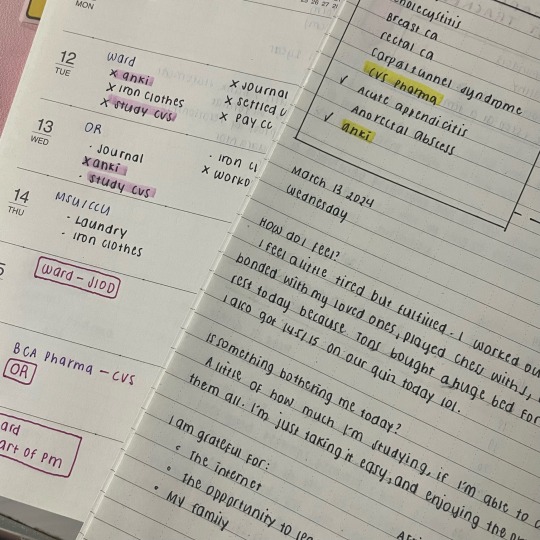 MON
12
TUE
ward
x anki
x iron clothes
x study cvs
x journal
x settled
x pay cc
13
WED
OR
· journal
x anki
· study cvs
· iron
x
14
THU
MSU/CCU
· Laundry
· iron clothes
ward - JIOD
BCA Pharma - CVS
OR
art of PM
Breast ca
rectal ca
carpal tunnel syndrome
CVS pharma
✓ Acute appendicitis
Anorectal abscess
✓ anki
March 13 2024
Wednesday
How do I feel?
I feel a little tired but fulfilled. I worked
bonded with my loved ones, played chess with J,
rest today because Tons bought a huge bed for
I also got 14.5/15 on our quiz today lol.
Is something bothering me today?
A little of how much I'm studying, if I'm able to
them all. I'm just taking it easy, and enjoying the
I am grateful for:
• The internet
• The opportunity to
• My family